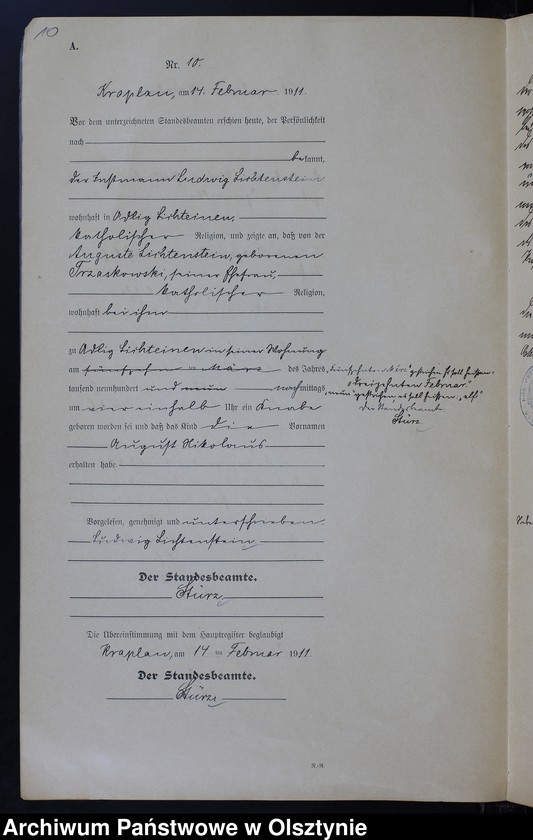 10
A.
Nr. 10.
Kraplau, am 14. Februar 1911.
Vor dem unterzeichneten Standesbeamten erschien heute, der Persönlichkeit
nach
bekannt,
der Instmann Ludwig Lichtenstein
wohnhaft in Adlig Lichteinen,
katholischer Religion, und zeigte an, daß von der
Auguste Lichtenstein, geborenen
Trzaskowski, seiner Ehefrau,
katholischer Religion,
wohnhaft bei ihm
zu Adlig Lichteinen in seiner Wohnung
am fünfzehn ten März des Jahres
tausend neunhundert und neun nachmittags
um vier einhalb Uhr ein Knabe
geboren worden sei und daß das Kind die Vornamen
August Nikolaus
erhalten habe.
"März" gestrichen, es soll heißen:
"dreizehnten Februar"
"neun" gestrichen, es soll heißen "elf"
Der Standesbeamte
Stürz
Vorgelesen, genehmigt und unterschrieben.
Ludwig Lichtenstein
Der Standesbeamte.
Stürz
Die Übereinstimmung mit dem Hauptregister beglaubigt
Kraplau, am 14 ten Februar 1911.
Der Standesbeamte.
Stürz
Archiwum Państwowe w Olsztynie